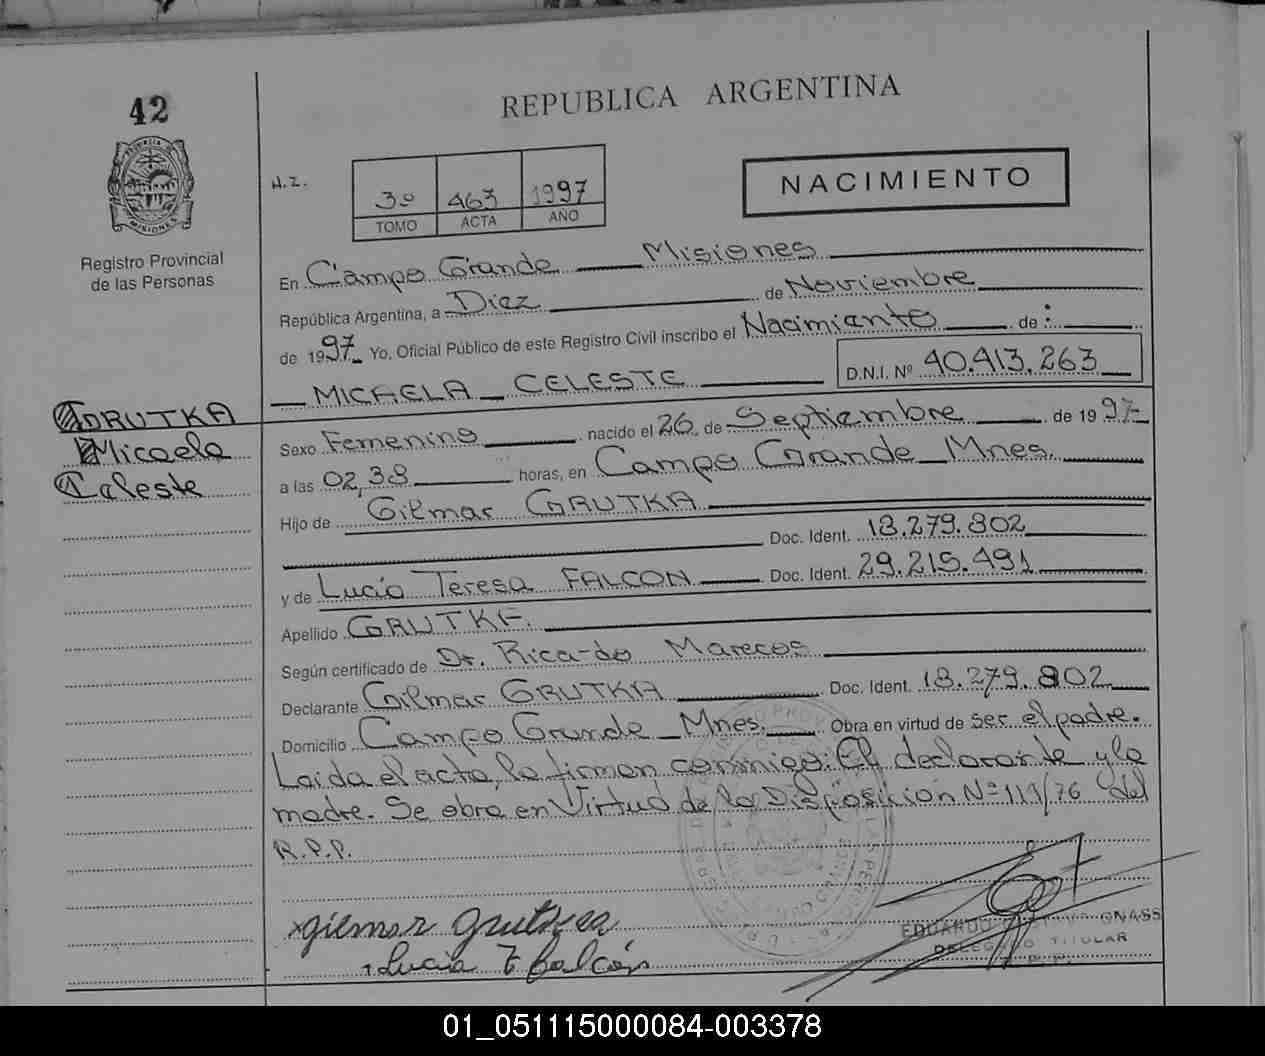 42
REPUBLICA ARGENTINA
N.Z.
3º 463 1997
TOMO ACTA AÑO
NACIMIENTO
PROVINCIA DE MISIONES
Registro Provincial
de las Personas
En Campo Grande Misiones
República Argentina, a Diez de Noviembre
de 1997 Yo, Oficial Público de este Registro Civil inscribo el Nacimiento de :
MICAELA CELESTE D.N.I. Nº 40.413.263
GRUTKA
Micaela
Celeste
Sexo Femenino nacido el 26 de Septiembre de 1997
a las 02,38 horas, en Campo Grande Mnes.
Hijo de Gilmar GRUTKA
Doc. Ident. 18.279.802
y de Lucía Teresa FALCON Doc. Ident. 29.215.491
Apellido GRUTKA.
Según certificado de Dr. Ricardo Marecos
Declarante Gilmar GRUTKA Doc. Ident. 18.279.802
Domicilio Campo Grande Mnes. Obra en virtud de ser el padre.
Leída el acta, la firman conmigo: El declarante y la
madre. Se obra en Virtud de la Disposición Nº 119/76 del
R.P.P.
gilmar grutka
Lucia T falcón
EDUARDO GNASS
DELEGADO TITULAR
R.P.P.
01_051115000084-003378